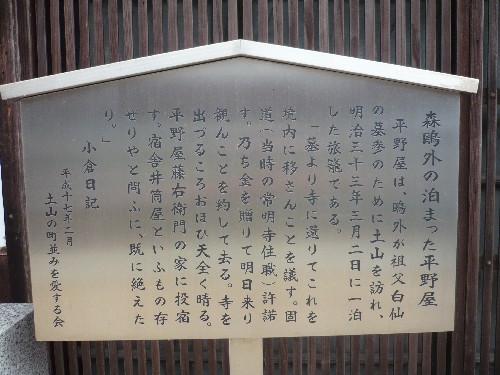 森鴎外の泊まった平野屋
平野屋は、鴎外が祖父白仙
の墓参のために土山を訪れ、
明治三十三年三月二日に一泊
した旅籠である。
「墓より寺に還りてこれを
境内に移さんことを議す。固
道(当時の常明寺住職)許諾
す。乃ち金を贈りて明日来り
観んことを約して去る。寺を
出づるころおほひ天全く晴る。
平野屋藤右衛門の家に投宿
す。宿舎井筒屋といふもの存
せりやと問ふに、既に絶えた
り。」
小倉日記
平成十七年二月
土山の町並みを愛する会